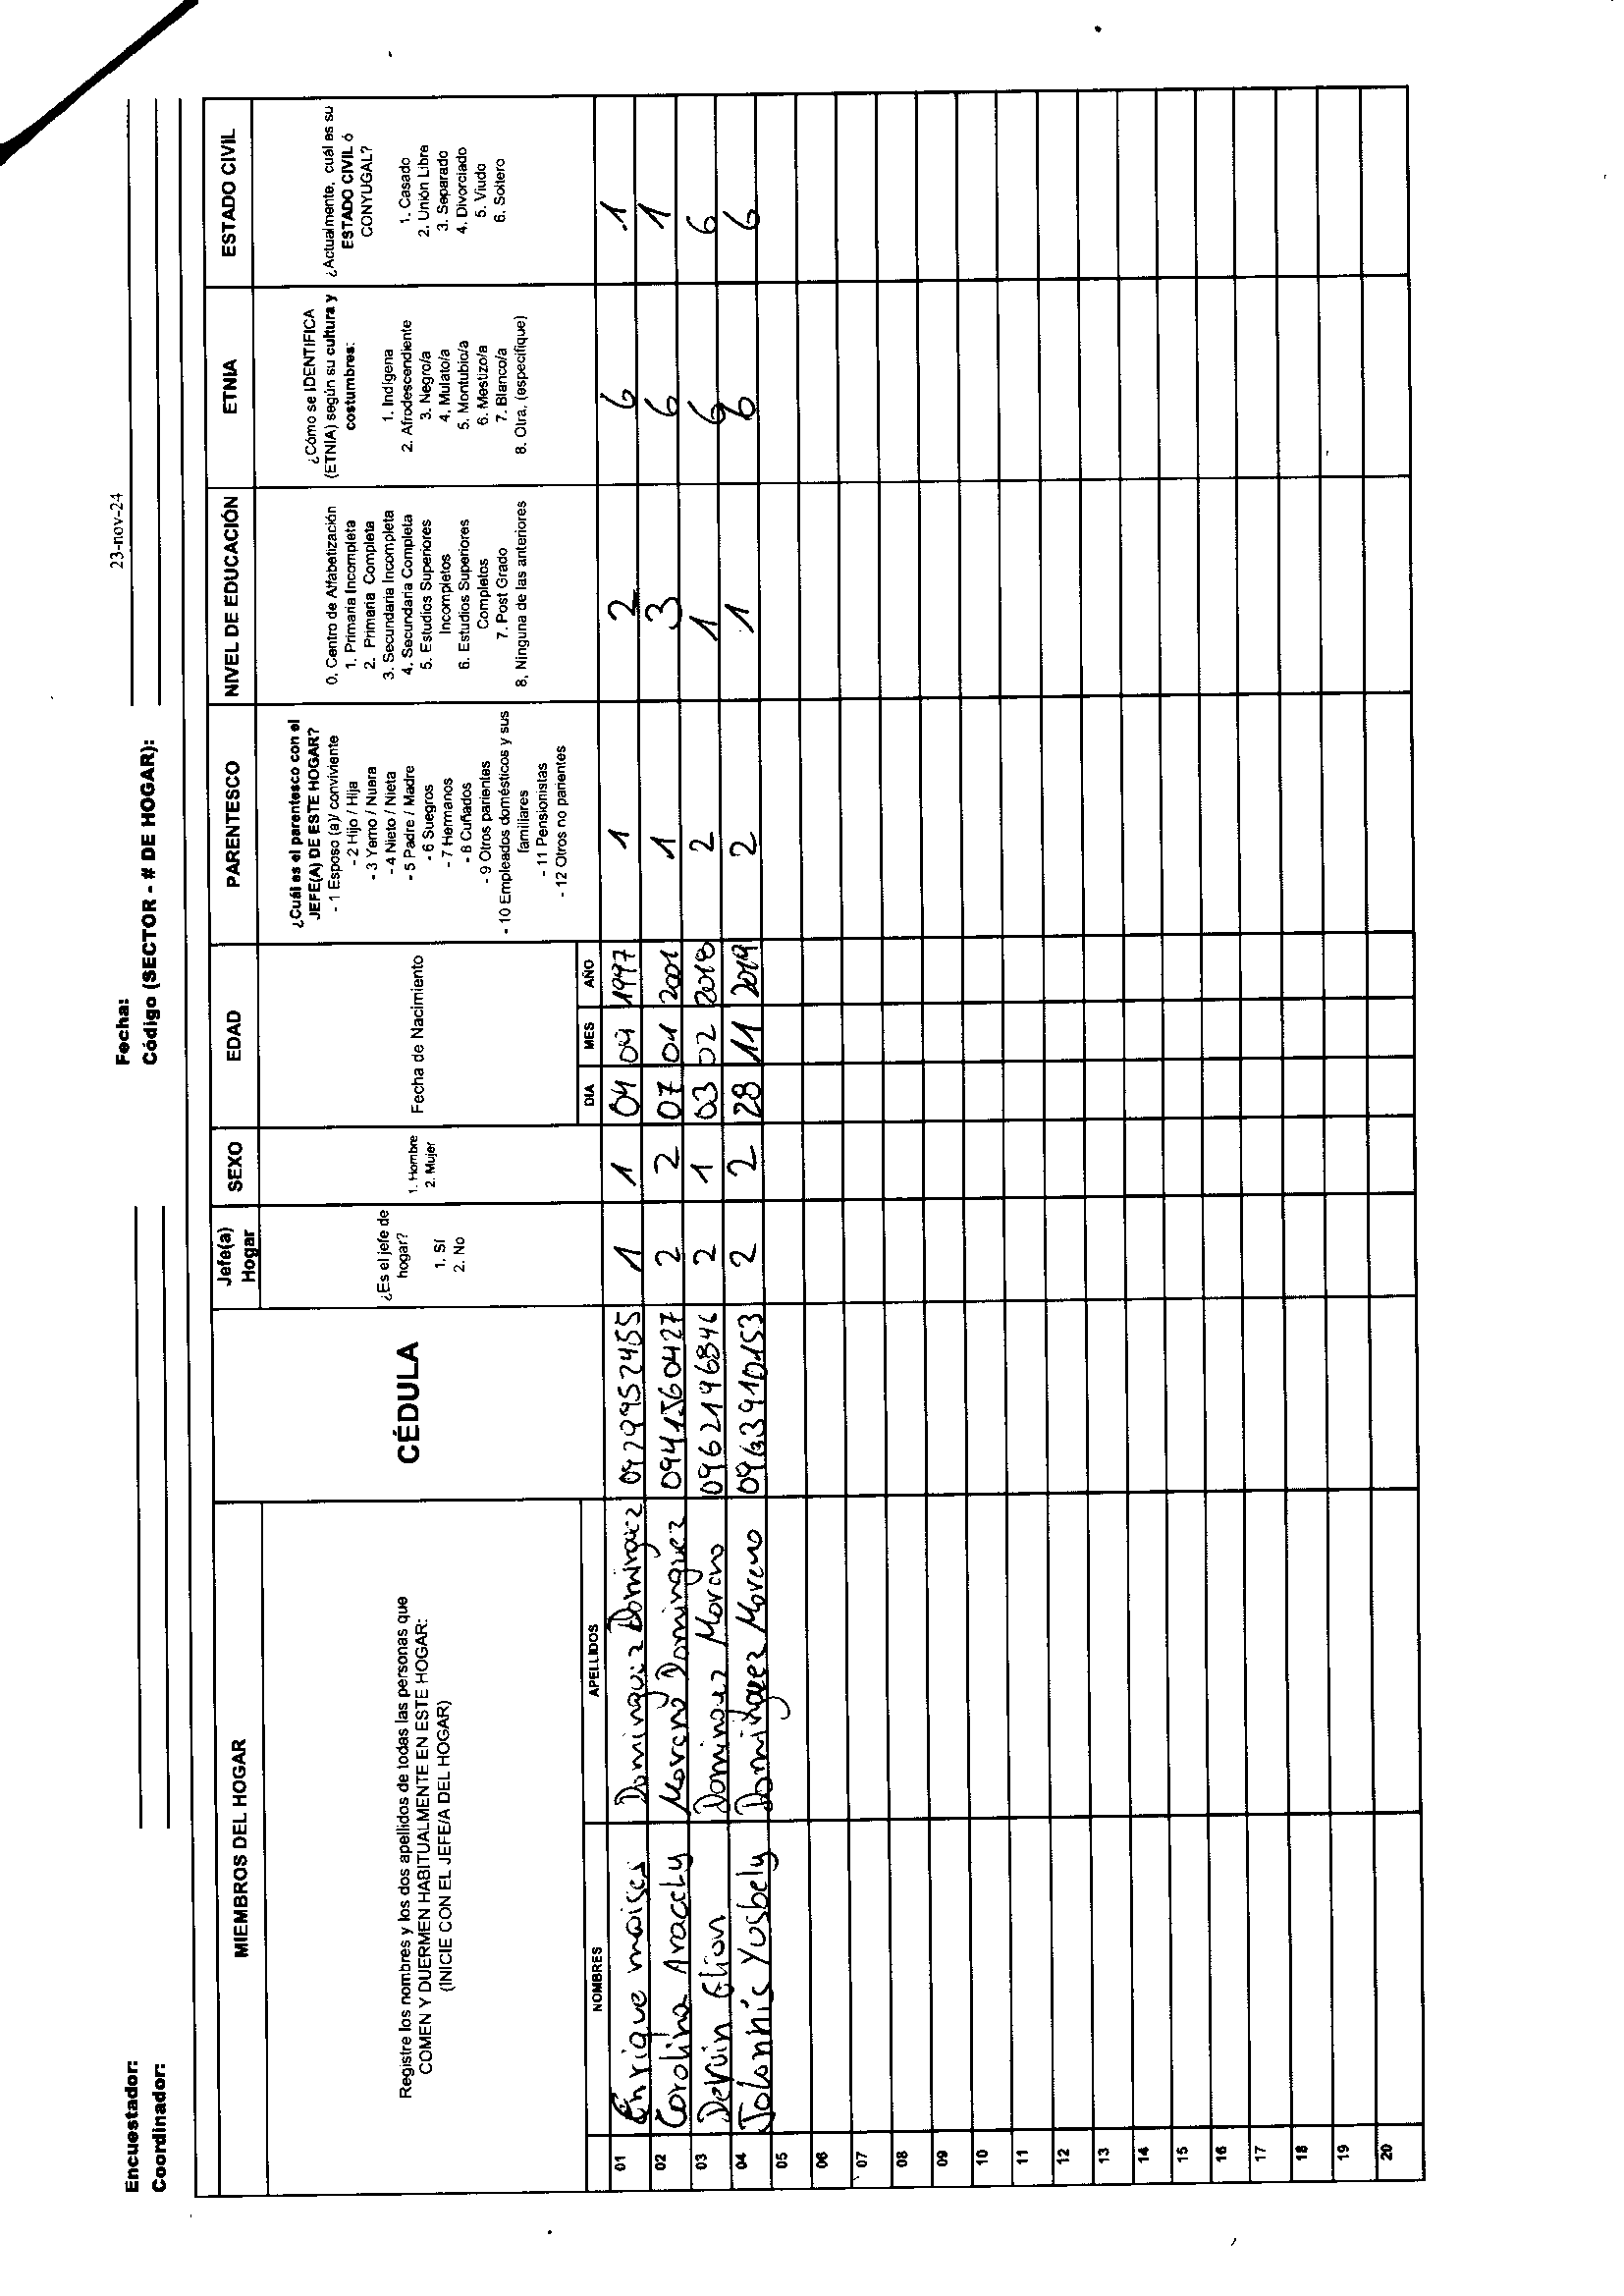 Encuestador:
Coordinador:
Fecha: 23-nov-24
Código (SECTOR - # DE HOGAR):
MIEMBROS DEL HOGAR
Registre los nombres y los dos apellidos de todas las personas que
COMEN Y DUERMEN HABITUALMENTE EN ESTE HOGAR:
(INICIE CON EL JEFE/A DEL HOGAR)
NOMBRES APELLIDOS
CÉDULA
Jefe(a)
Hogar
¿Es el jefe de
hogar?
1. Sí
2. No
SEXO
1. Hombre
2. Mujer
EDAD
Fecha de Nacimiento
DIA MES AÑO
PARENTESCO
¿Cuál es el parentesco con el
JEFE(A) DE ESTE HOGAR?
- 1 Esposo (a)/ conviviente
- 2 Hijo / Hija
- 3 Yerno / Nuera
- 4 Nieto / Nieta
- 5 Padre / Madre
- 6 Suegros
- 7 Hermanos
- 8 Cuñados
- 9 Otros parientes
- 10 Empleados domésticos y sus
familiares
- 11 Pensionistas
- 12 Otros no parientes
NIVEL DE EDUCACIÓN
0. Centro de Alfabetización
1. Primaria Incompleta
2. Primaria Completa
3. Secundaria Incompleta
4. Secundaria Completa
5. Estudios Superiores
Incompletos
6. Estudios Superiores
Completos
7. Post Grado
8. Ninguna de las anteriores
ETNIA
¿Cómo se IDENTIFICA
(ETNIA) según su cultura y
costumbres:
1. Indígena
2. Afrodescendiente
3. Negro/a
4. Mulato/a
5. Montubio/a
6. Mestizo/a
7. Blanco/a
8. Otra, (especifique)
ESTADO CIVIL
¿Actualmente, cuál es su
ESTADO CIVIL ó
CONYUGAL?
1. Casado
2. Unión Libre
3. Separado
4. Divorciado
5. Viudo
6. Soltero
01 Enrique moises Dominguez Dominguez 0929952455 1 1 04 04 1997 1 2 6 1
02 Carolina Aracely Moreno Dominguez 0941560427 2 2 07 01 2001 1 3 6 1
03 Dominguez Moreno 0962196846 2 1 03 02 2018 2 1 6 6
04 Yusbely Dominguez Moreno 0963910153 2 2 28 11 2019 2 1 6 6
05
06
07
08
09
10
11
12
13
14
15
16
17
18
19
20